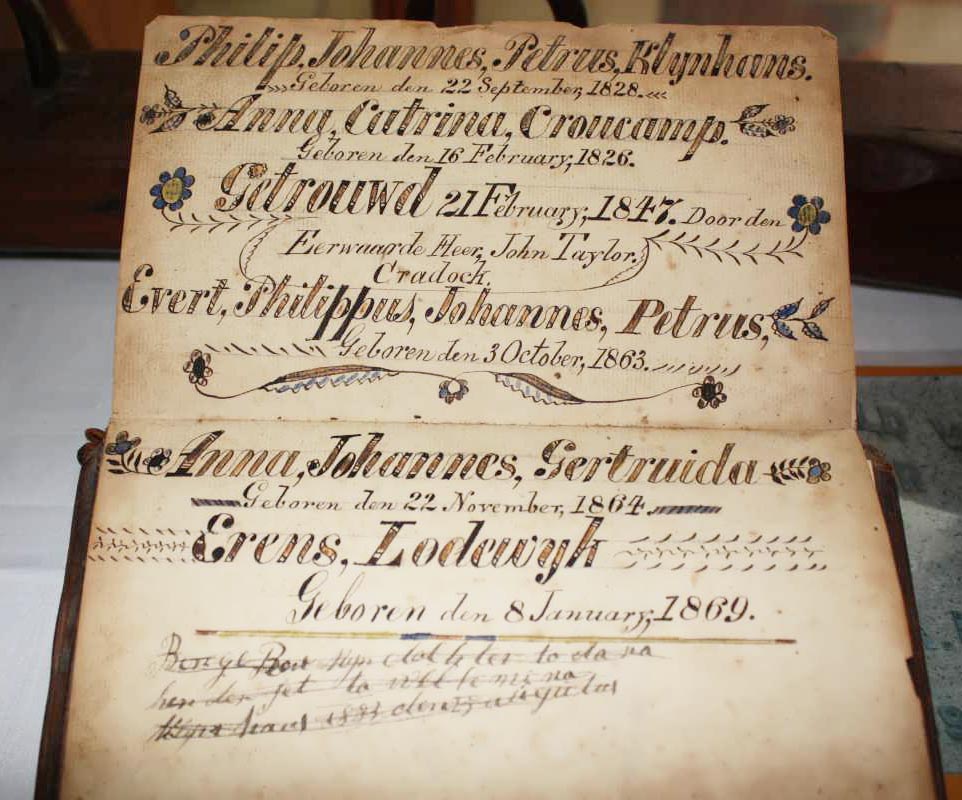 Philip, Johannes, Petrus, Klynhans.
Geboren den 22 September, 1828.
Anna, Catrina, Croucamp.
Geboren den 16 February, 1826.
Getrouwd 21 February, 1847. Door den
Eerwaarde Heer, John Taylor.
Cradock.
Evert, Philippus, Johannes, Petrus,
Geboren den 3 October, 1863.
Anna, Johannes, Gertruida
Geboren den 22 November, 1864
Erens, Lodewyk
Geboren den 8 January, 1869.
1883 den